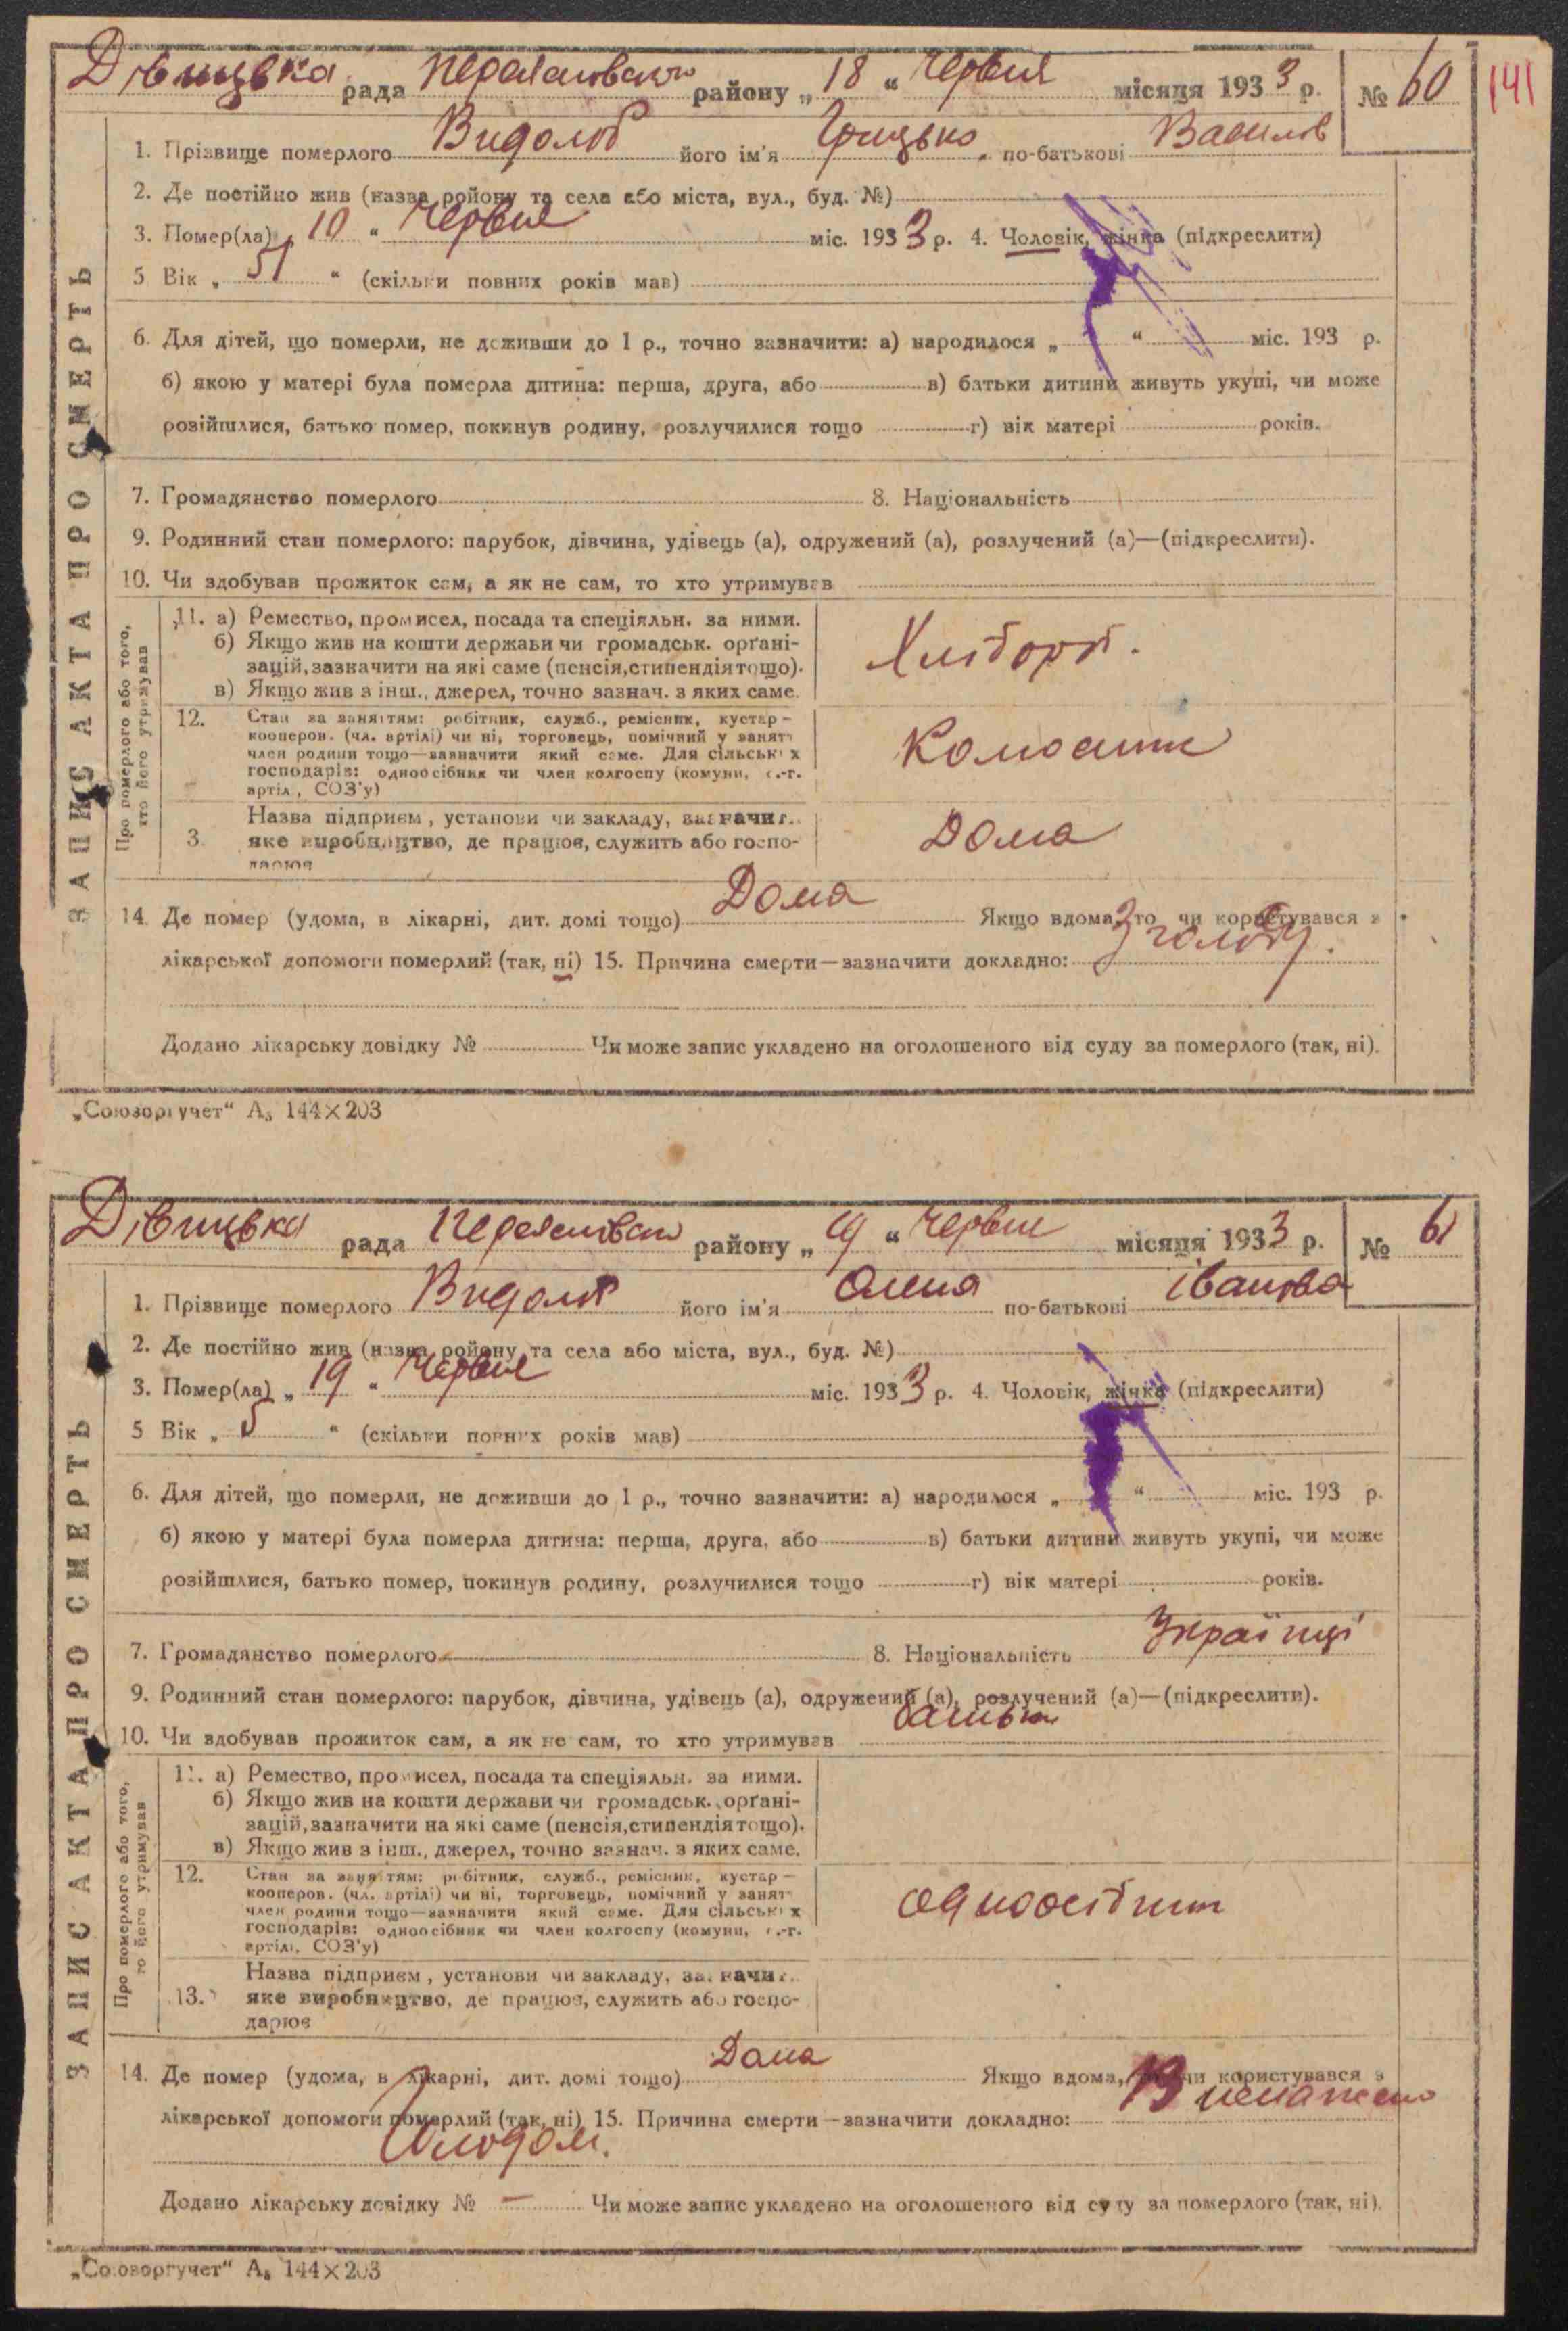 141
Дівицька рада Переяславськ району „ 18 “ Червня місяця 1933 р. № 60
ЗАПИС АКТА ПРО СМЕРТЬ
1. Прізвище померлого Видолоб його ім'я Грицько по-батькові Василов
2. Де постійно жив (назва ройону та села або міста, вул., буд. №)
3. Помер(ла) „ 10 “ Червня міс. 1933 р. 4. Чоловік, жінка (підкреслити)
5 Вік „ 51 “ (скільки повних років мав)
6. Для дітей, що померли, не доживши до 1 р., точно зазначити: а) народилося „ “ міс. 193 р.
б) якою у матері була померла дитина: перша, друга, або в) батьки дитини живуть укупі, чи може
розійшлися, батько помер, покинув родину, розлучилися тощо г) вік матері років.
7. Громадянство померлого 8. Національність
9. Родинний стан померлого: парубок, дівчина, удівець (а), одружений (а), розлучений (а)—(підкреслити).
10. Чи здобував прожиток сам, а як не сам, то хто утримував
Про померлого або того, хто його утримував
11. а) Ремество, промисел, посада та спеціяльн. за ними.
б) Якщо жив на кошти держави чи громадськ. орґані-
зацій, зазначити на які саме (пенсія, стипендія тощо).
в) Якщо жив з інш., джерел, точно зазнач. з яких саме.
Хлібороб.
12. Стан за заняттям: робітник, служб., ремісник, кустар—
кооперов. (чл. артілі) чи ні, торговець, помічний у занят
член родини тощо—зазначити який саме. Для сільських
господарів: одноосібник чи член колгоспу (комуни, с.-г.
артіл, СОЗ'у)
3. Назва підприєм, установи чи закладу, зазначит.
яке виробництво, де працює, служить або госпо-
дарює
Дома
14. Де помер (удома, в лікарні, дит. домі тощо) Дома Якщо вдома, то чи користувався з
лікарської допомоги померлий (так, ні) 15. Причина смерти—зазначити докладно: З голоду.
Додано лікарську довідку № Чи може запис укладено на оголошеного від суду за померлого (так, ні).
„Союзоргучет“ А₅ 144×203
Дівицька рада Переяславськ району „ 19 “ Червня місяця 1933 р. № 61
ЗАПИС АКТА ПРО СМЕРТЬ
1. Прізвище померлого Видолоб його ім'я Олена по-батькові Іванова
2. Де постійно жив (назва ройону та села або міста, вул., буд. №)
3. Помер(ла) „ 19 “ Червня міс. 1933 р. 4. Чоловік, жінка (підкреслити)
5 Вік „ 5 “ (скільки повних років мав)
6. Для дітей, що померли, не доживши до 1 р., точно зазначити: а) народилося „ “ міс. 193 р.
б) якою у матері була померла дитина: перша, друга, або в) батьки дитини живуть укупі, чи може
розійшлися, батько помер, покинув родину, розлучилися тощо г) вік матері років.
7. Громадянство померлого 8. Національність Українці
9. Родинний стан померлого: парубок, дівчина, удівець (а), одружений (а), розлучений (а)—(підкреслити).
10. Чи здобував прожиток сам, а як не сам, то хто утримував батьки
Про померлого або того, хто його утримував
11. а) Ремество, промисел, посада та спеціяльн. за ними.
б) Якщо жив на кошти держави чи громадськ. орґані-
зацій, зазначити на які саме (пенсія, стипендія тощо).
в) Якщо жив з інш., джерел, точно зазнач. з яких саме.
12. Стан за заняттям: робітник, служб., ремісник, кустар—
кооперов. (чл. артілі) чи ні, торговець, помічний у занят
член родини тощо—зазначити який саме. Для сільських
господарів: одноосібник чи член колгоспу (комуни, с.-г.
артілі, СОЗ'у)
одноосібник
13. Назва підприєм, установи чи закладу, зазначит.
яке виробництво, де працює, служить або госпо-
дарює
14. Де помер (удома, в лікарні, дит. домі тощо) Дома Якщо вдома, то чи користувався з
лікарської допомоги померлий (так, ні) 15. Причина смерти—зазначити докладно:
Додано лікарську довідку № — Чи може запис укладено на оголошеного від суду за померлого (так, ні).
„Союзоргучет“ А₅ 144×203